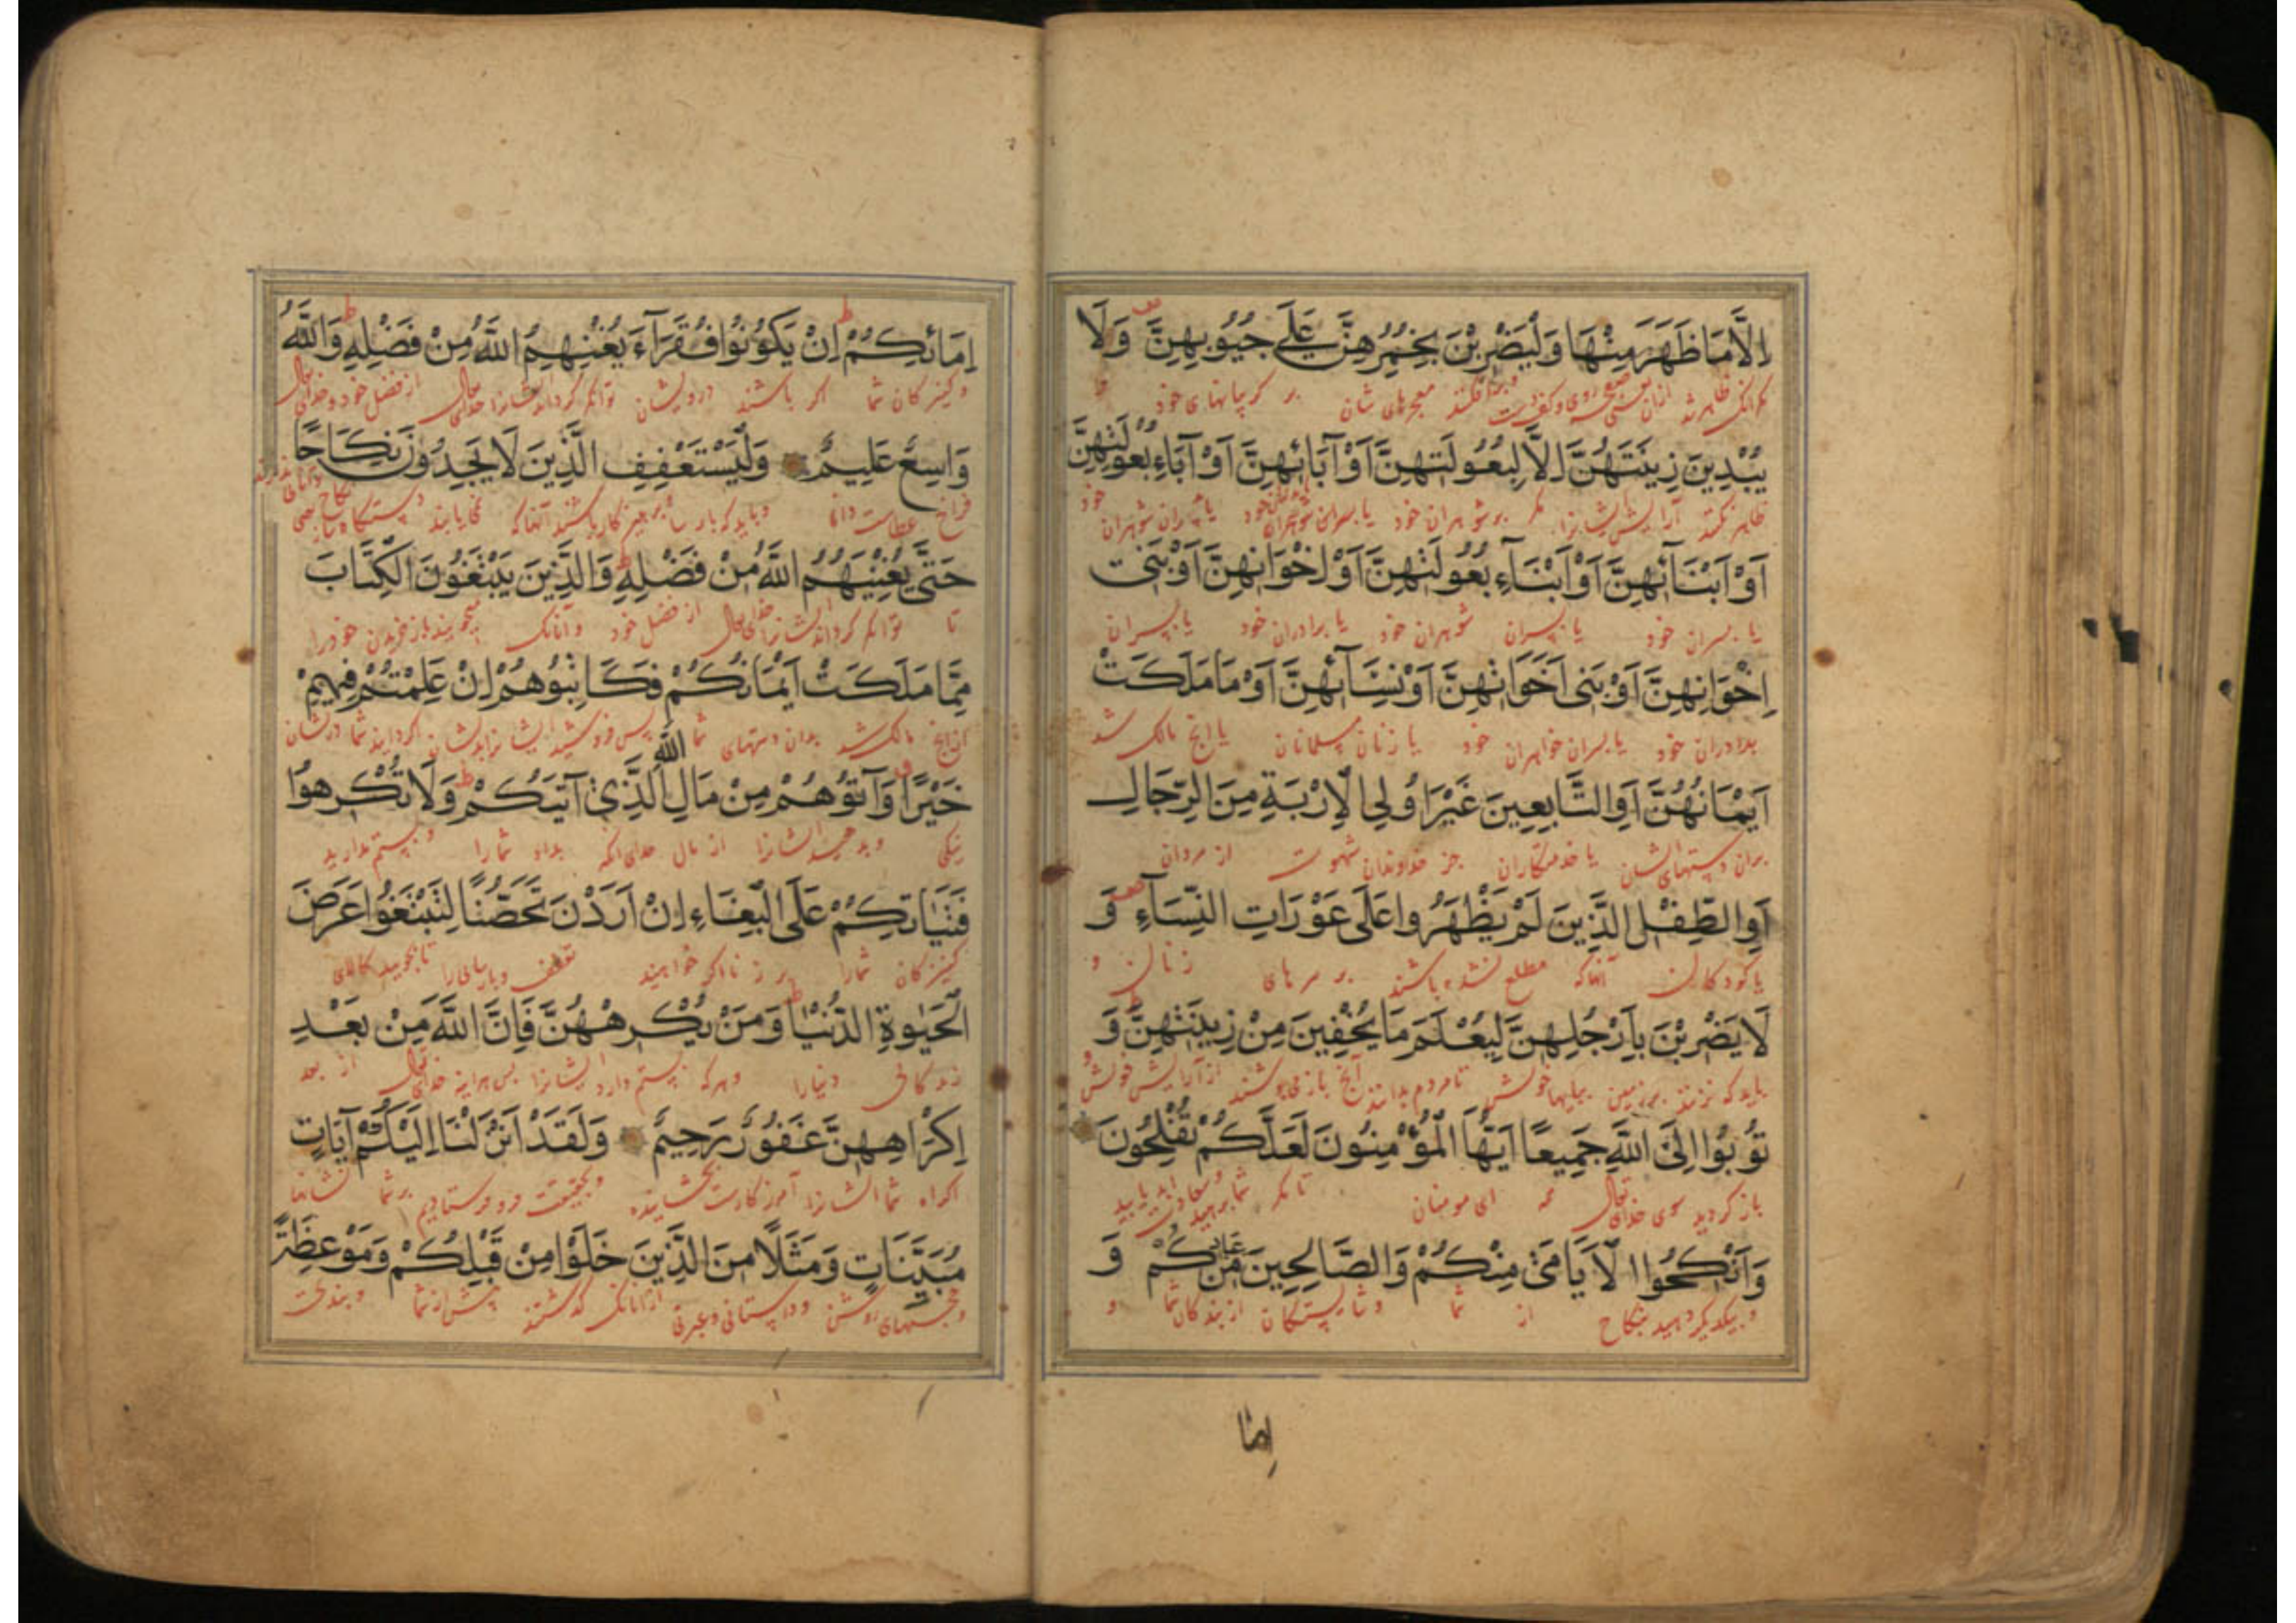 اِلَّا مَا ظَهَرَ مِنْهَا وَلْيَضْرِبْنَ بِخُمُرِهِنَّ عَلَى جُيُوبِهِنَّ وَلَا
يُبْدِينَ زِينَتَهُنَّ اِلَّا لِبُعُولَتِهِنَّ اَوْ آبَائِهِنَّ اَوْ آبَاءِ بُعُولَتِهِنَّ
ظاهر نکنند آرایش ایشانرا مگر بر شوهران خود یا پدران خود یا پدران شوهران خود
اَوْ اَبْنَآئِهِنَّ اَوْ اَبْنَآءِ بُعُولَتِهِنَّ اَوْ اِخْوَانِهِنَّ اَوْ بَنِى
یا پسران خود یا پسران شوهران خود یا برادران خود یا پسران
اِخْوَانِهِنَّ اَوْ بَنِى اَخَوَاتِهِنَّ اَوْ نِسَآئِهِنَّ اَوْ مَا مَلَكَتْ
برادران خود یا پسران خواهران خود یا زنان مسلمانان یا انچ مالک شد
اَيْمَانُهُنَّ اَوِ التَّابِعِينَ غَيْرِ اُولِى الْاِرْبَةِ مِنَ الرِّجَالِ
بران دستهای ایشان یا خدمتکاران جز خداوندان شهوت از مردان
اَوِ الطِّفْلِ الَّذِينَ لَمْ يَظْهَرُوا عَلَى عَوْرَاتِ النِّسَآءِ وَ
یا کودکان آنها که مطلع نشده باشند بر سرهای زنان و
لَا يَضْرِبْنَ بِاَرْجُلِهِنَّ لِيُعْلَمَ مَا يُخْفِينَ مِنْ زِينَتِهِنَّ وَ
باید که نزنند بر زمین بپایها خویش تا مردم بدانند آنچ باز می پوشند از آرایش خویش و
تُوبُوا اِلَى اللَّهِ جَمِيعًا اَيُّهَا الْمُؤْمِنُونَ لَعَلَّكُمْ تُفْلِحُونَ
باز گردید سوی خدای تعالی همه ای مومنان تا مگر شما
وَاَنْكِحُوا الْاَيَامَى مِنْكُمْ وَالصَّالِحِينَ مِنْ عِبَادِكُمْ وَ
از شما و شایستگان از بندگان شما و
اِما
اِمَائِكُمْ اِنْ يَكُونُوا فُقَرَآءَ يُغْنِهِمُ اللَّهُ مِنْ فَضْلِهِ وَاللَّهُ
و کنیزکان شما اگر باشند درویشان توانگر گرداند ایشانرا خدای تعالی از فضل خود و خدای تعالی
وَاسِعٌ عَلِيمٌ وَلْيَسْتَعْفِفِ الَّذِينَ لَا يَجِدُونَ نِكَاحًا
فراخ عطاست دانا
حَتَّى يُغْنِيَهُمُ اللَّهُ مِنْ فَضْلِهِ وَالَّذِينَ يَبْتَغُونَ الْكِتَابَ
تا توانگر گرداند ایشانرا خدای تعالی از فضل خود و آنانک میجویند باز خریدن خود را
مِمَّا مَلَكَتْ اَيْمَانُكُمْ فَكَاتِبُوهُمْ اِنْ عَلِمْتُمْ فِيهِمْ
ازانچ مالک شد بدان دستهای شما پس
خَيْرًا وَآتُوهُمْ مِنْ مَالِ اللَّهِ الَّذِى آتَيكُمْ وَلَا تُكْرِهُوا
نیکی و بدهید ایشانرا از مال خدای انکه بداد شما را و بستم مدارید
فَتَيَاتِكُمْ عَلَى الْبِغَاءِ اِنْ اَرَدْنَ تَحَصُّنًا لِتَبْتَغُوا عَرَضَ
کنیزکان شما را بر زنا اگر خواهند تعفف و پارسایی را تا بجویید کالای
الْحَيٰوةِ الدُّنْيَا وَمَنْ يُكْرِهْهُنَّ فَاِنَّ اللَّهَ مِنْ بَعْدِ
زندگانی دنیا را و هر که بستم دارد ایشانرا پس هراینه خدای تعالی از بعد
اِكْرَاهِهِنَّ غَفُورٌ رَحِيمٌ وَلَقَدْ اَنْزَلْنَا اِلَيْكُمْ آيَاتٍ
اکراه شما ایشانرا آمرزگارست بخشاینده و بحقیقت فرو فرستادیم بر شما نشانها
مُبَيِّنَاتٍ وَمَثَلًا مِنَ الَّذِينَ خَلَوْا مِنْ قَبْلِكُمْ وَمَوْعِظَةً
و حجتهای روشن و داستانی و عبرتی از آنانک گذشتند پیش از شما و پند